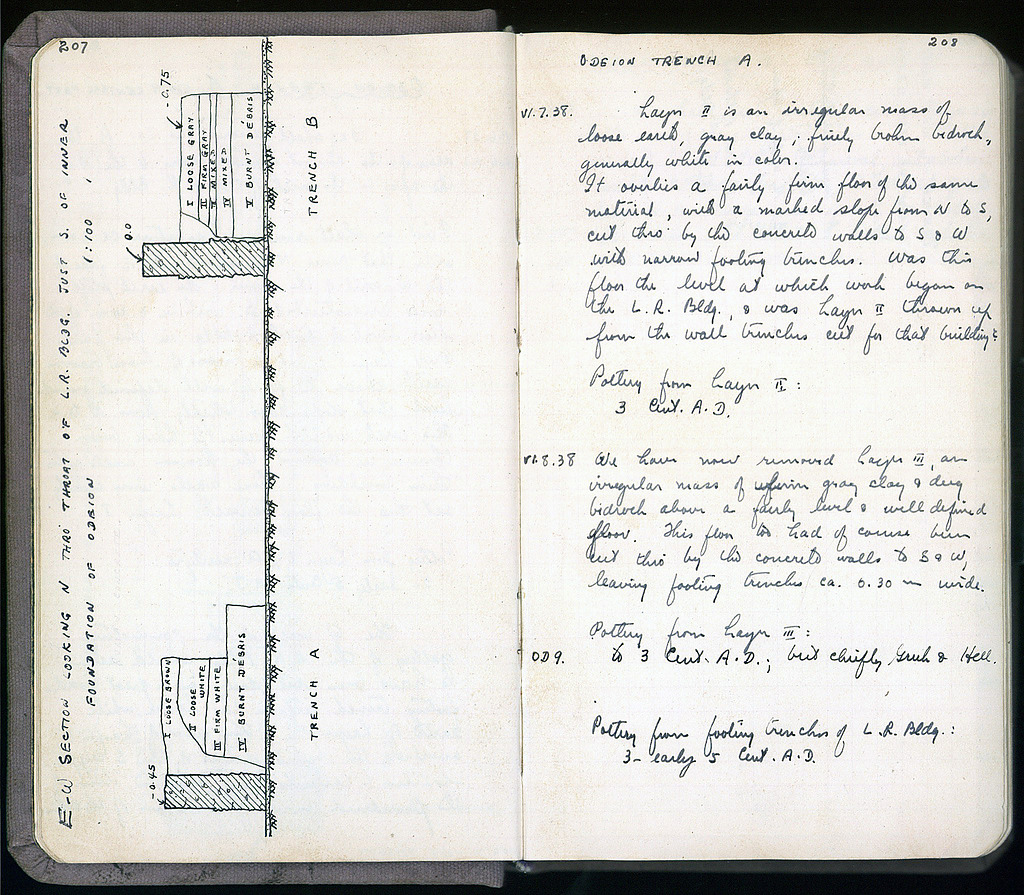 207
E-W SECTION LOOKING N THRO THROAT OF L.R. BLDG. JUST S. OF INNER
FOUNDATION OF ODEION 1:100
-0.75
I LOOSE GRAY
II FIRM GRAY
III MIXED
IV MIXED
V BURNT DÉBRIS
TRENCH B
0.0
I LOOSE BROWN
II LOOSE
WHITE
III FIRM WHITE
IV BURNT DÉBRIS
TRENCH A
-0.45
208
ODEION TRENCH A.
VI.7.38. Layer II is an irregular mass of
loose earth, gray clay, finely broken bedrock,
generally white in color.
It overlies a fairly firm floor of the same
material, with a marked slope from N to S,
cut thro' by the concrete walls to S & W
with narrow footing trenches. Was this
floor the level at which work began on
the L.R. Bldg., & was Layer II thrown up
from the wall trenches cut for that building?
Pottery from Layer II:
3 Cent. A.D.
VI.8.38 We have now removed Layer III, an
irregular mass of firm gray clay & dug
bedrock above a fairly level & well defined
floor. This floor too had of course been
cut thro' by the concrete walls to S & W,
leaving footing trenches ca. 0.30 m wide.
Pottery from Layer III:
OD9. to 3 Cent. A.D.; but chiefly Greek & Hell.
Pottery from footing trenches of L.R. Bldg.:
3- early 5 Cent. A.D.